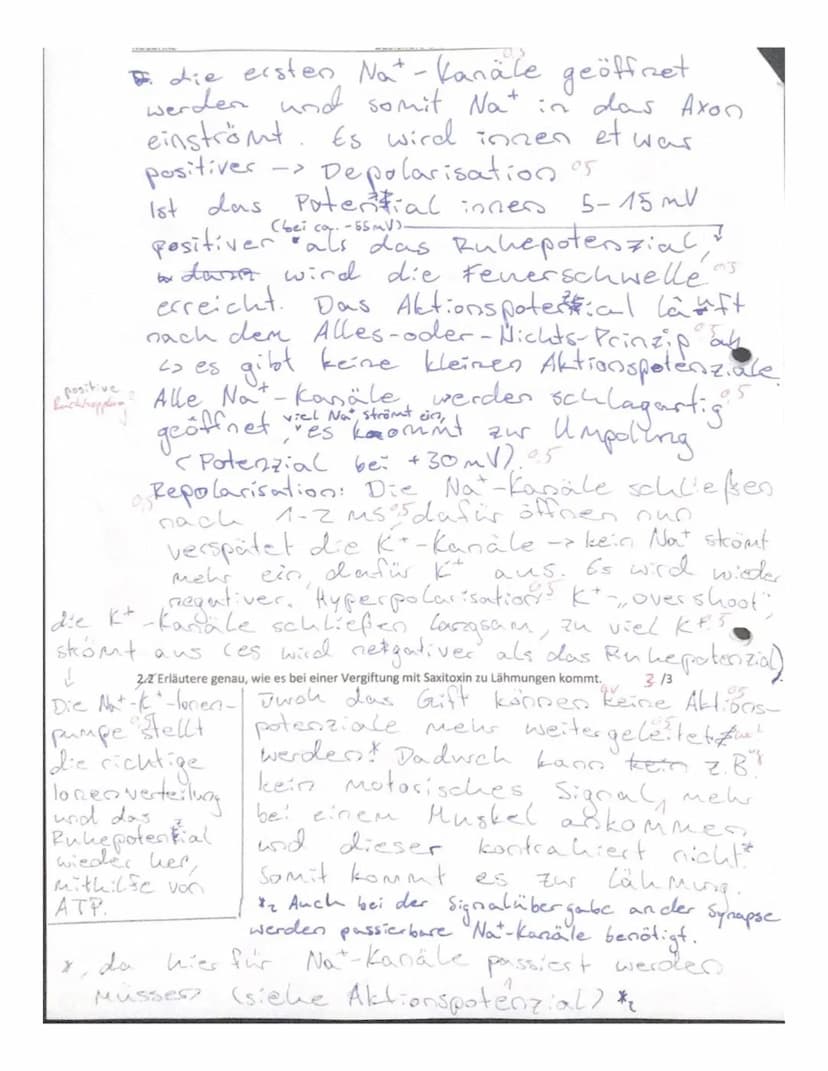 die ersten Na⁺-Kanäle geöffnet
werden und somit Na⁺ in das Axon
einströmt. Es wird innen etwas
positiver -> Depolarisation 0,5
Ist das Potenzial innen 5-15 mV
(bei ca. -55mV)
positiver als das Ruhepotenzial,
wird die Feuerschwelle 0,5
erreicht. Das Aktionspotenzial läuft
nach dem Alles-oder-Nichts-Prinzip 0,5 ab
↳ es gibt keine kleinen Aktionspotenziale.
positive
Rückkopplung
Alle Na⁺-Kanäle werden schlagartig 0,5
geöffnet, viel Na⁺ strömt ein, es kommt zur Umpolung
(Potenzial bei +30mV). 0,5
0,5 Repolarisation: Die Na⁺-Kanäle schließen
nach 1-2 ms, 0,5 dafür öffnen nun
verspätet die K⁺-Kanäle -> kein Na⁺ stömt
mehr ein, dafür K⁺ aus. Es wird wieder
negativer. Hyperpolarisation 0,5 K⁺-„overshoot",
die K⁺-Kanäle schließen langsam, zu viel K⁺ 0,5
stömt aus (es wird negativer als das Ruhepotenzial)
↓
Die Na⁺-K⁺-Ionen-
pumpe 0,5 stellt
die richtige
Ionenverteilung
und das
Ruhepotenzial
wieder her,
mithilfe von
ATP.
2.2 Erläutere genau, wie es bei einer Vergiftung mit Saxitoxin zu Lähmungen kommt. 3 /3
Durch das Gift können keine Aktions-
potenziale mehr weitergeleitet
werden.* Dadurch kann z.B.
kein motorisches Signal mehr
bei einem Muskel ankommen
und dieser kontrahiert nicht.
Somit kommt es zur Lähmung.
*₂ Auch bei der Signalübergabe an der Synapse
werden passierbare Na⁺-Kanäle benötigt.
*, da hier für Na⁺-Kanäle passiert werden
müssen (siehe Aktionspotenzial) *₂